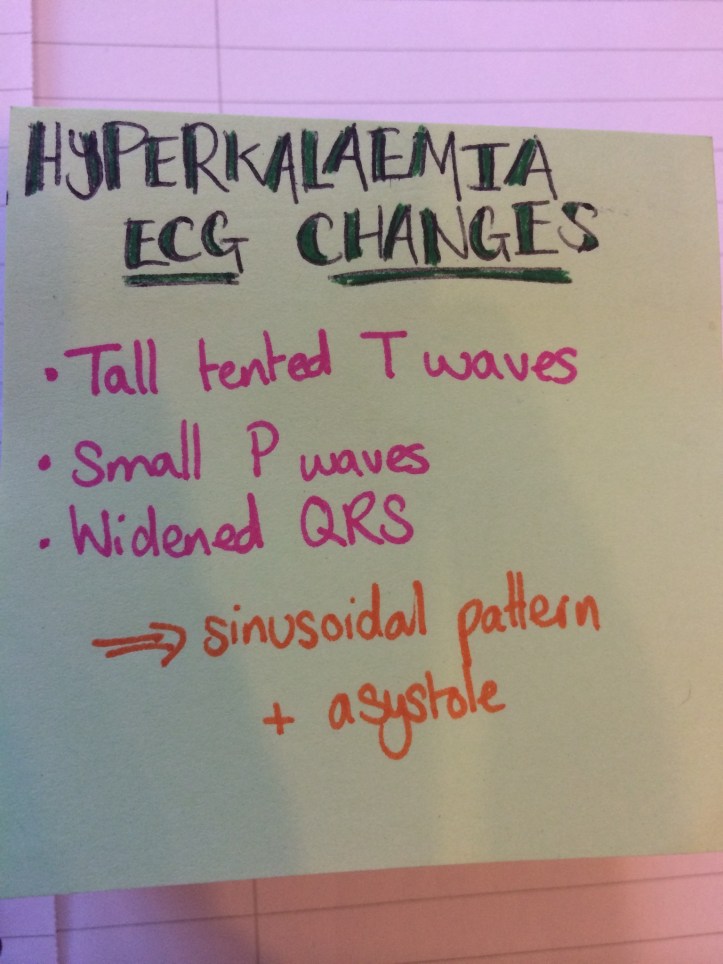 HYPERKALAEMIA
ECG CHANGES
• Tall tented T waves
• Small P waves
• Widened QRS
⇒ sinusoidal pattern
+ asystole